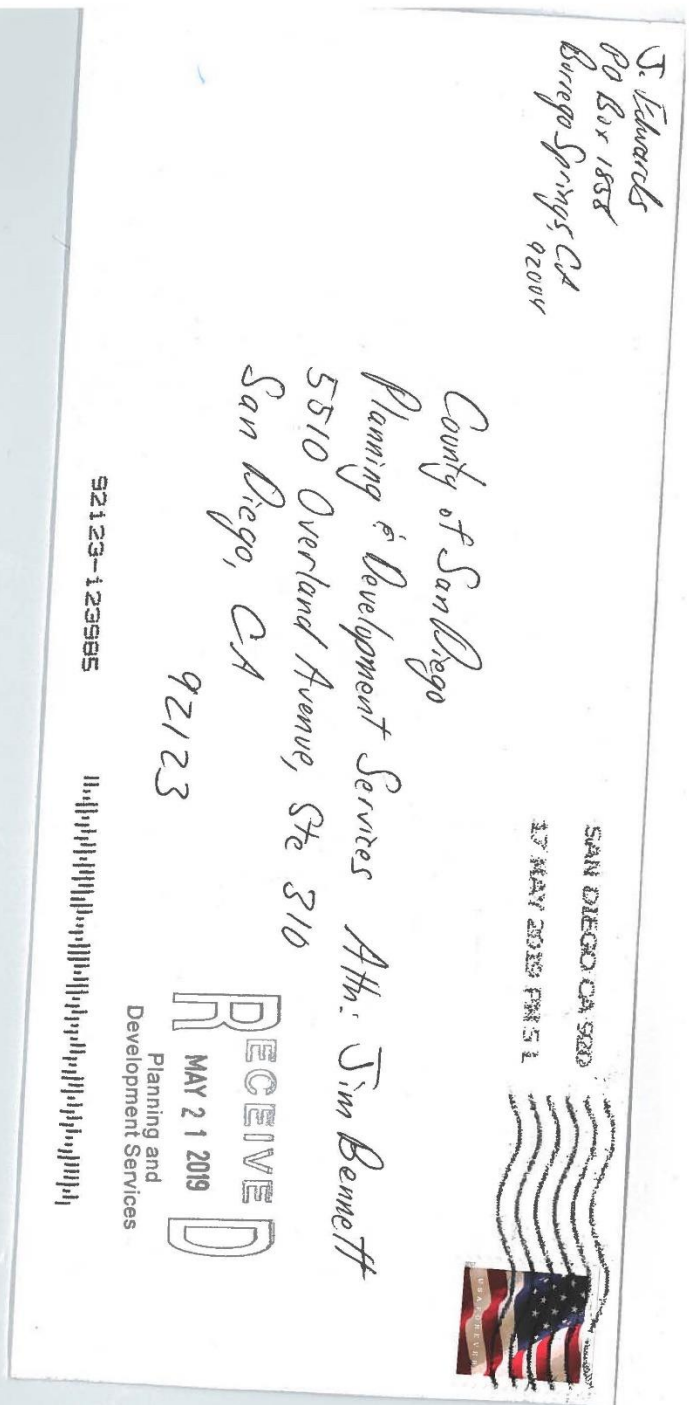 J. Edwards
PO Box 1858
Borrego Springs, CA
92004
SAN DIEGO CA 920
17 MAY 2019 PM 5 L
USA FOREVER
County of San Diego
Planning & Development Services Attn: Jim Bennett
5510 Overland Avenue, Ste 310
San Diego, CA
92123
RECEIVED
MAY 21 2019
Planning and
Development Services
92123-123985